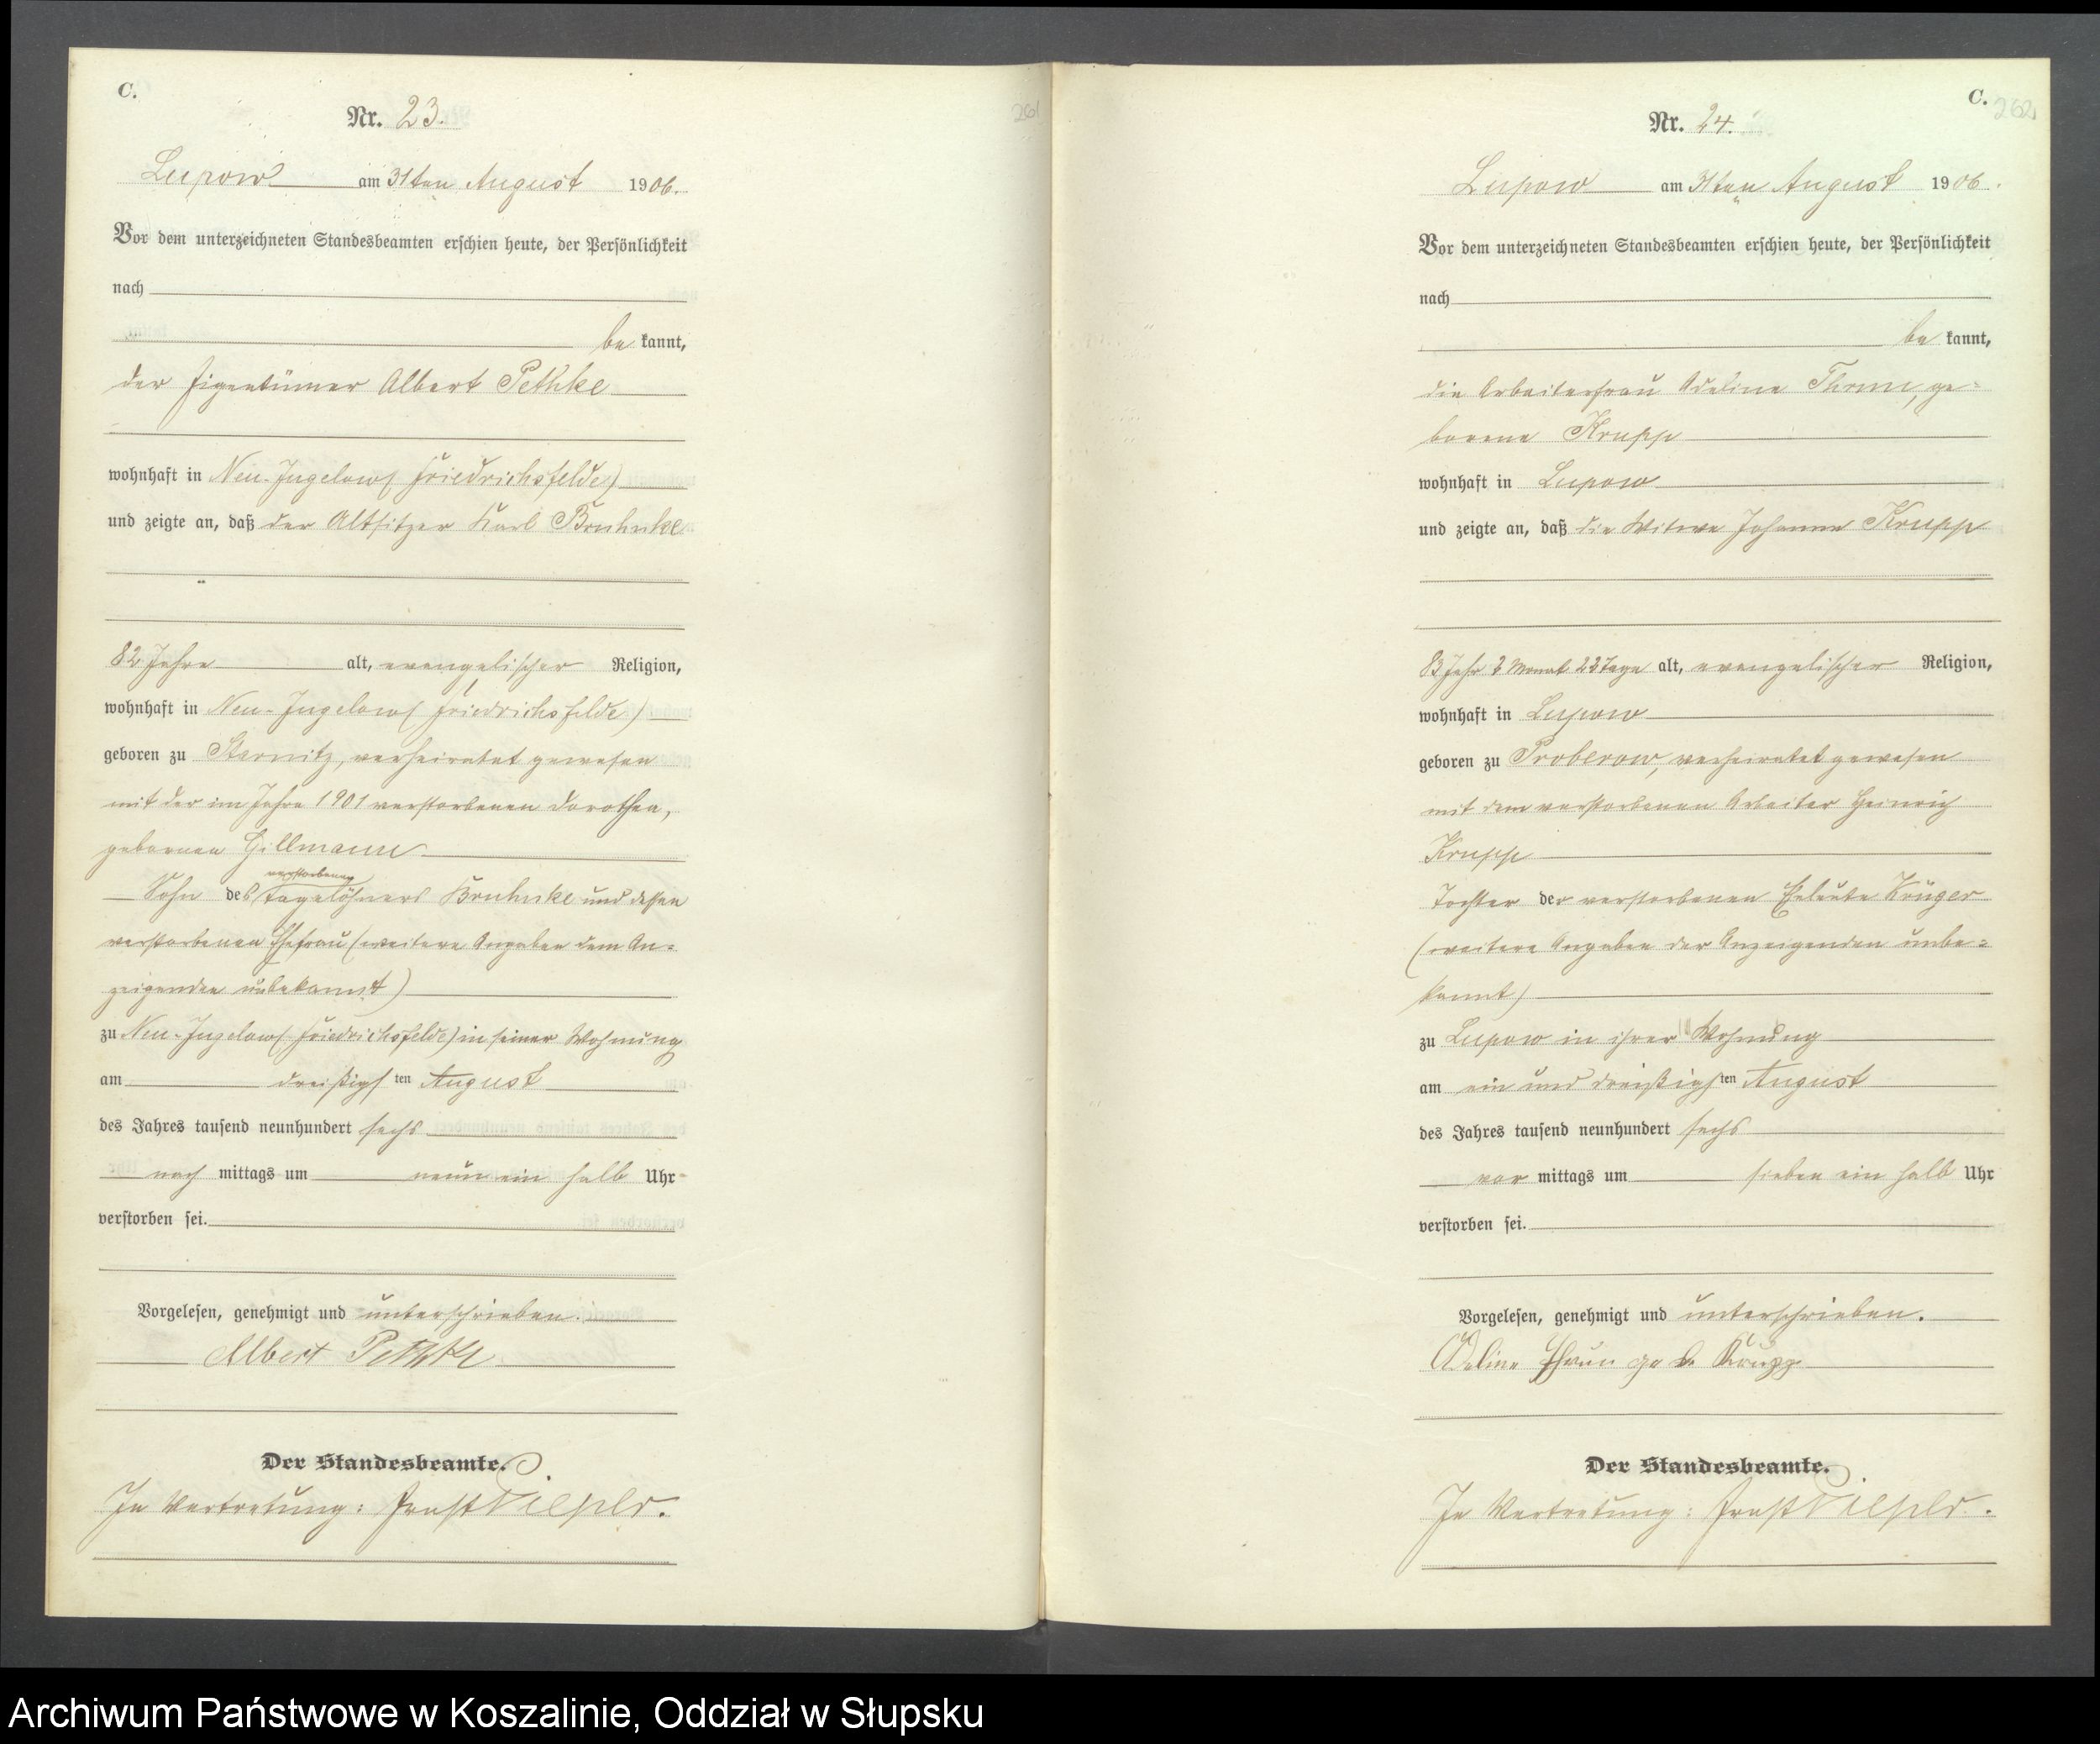 C.
Nr. 23.
Lupow am 31ten August 1906.
Vor dem unterzeichneten Standesbeamten erschien heute, der Persönlichkeit
nach
be kannt,
der Eigentümer Albert Pethke
wohnhaft in Neu-Jugelow (Friedrichsfelde)
und zeigte an, daß der Altsitzer Karl Bruhnke
82 Jahre alt, evangelischer Religion,
wohnhaft in Neu-Jugelow (Friedrichsfelde)
geboren zu Starnitz, verheiratet gewesen
mit der im Jahre 1901 verstorbenen Dorothea,
gebornen Gillmann
verstorbenen
Sohn des Tagelöhners Bruhnke und dessen
verstorbenen Ehefrau (weitere Angaben dem An-
zeigenden unbekannt)
zu Neu-Jugelow (Friedrichsfelde) in seiner Wohnung
am dreißigsten August
des Jahres tausend neunhundert sechs
nach mittags um neun ein halb Uhr
verstorben sei.
Vorgelesen, genehmigt und unterschrieben.
Albert Pethke
Der Standesbeamte.
In Vertretung: Ernst Pieper.
261
C.
262
Nr. 24.
Lupow am 31ten August 1906.
Vor dem unterzeichneten Standesbeamten erschien heute, der Persönlichkeit
nach
be kannt,
die Arbeiterfrau Adeline Thrun, ge-
borene Krupp
wohnhaft in Lupow
und zeigte an, daß die Witwe Johanna Krupp
83 Jahr Monat 23 Tage alt, evangelischer Religion,
wohnhaft in Lupow
geboren zu Proberow, verheiratet gewesen
mit dem verstorbenen Arbeiter Heinrich
Krupp
Tochter der verstorbenen Eheleute Krüger
(weitere Angaben der Anzeigenden unbe-
kannt)
zu Lupow in ihrer Wohnung
am ein und dreißigsten August
des Jahres tausend neunhundert sechs
vor mittags um sieben ein halb Uhr
verstorben sei.
Vorgelesen, genehmigt und unterschrieben.
Adeline Thrun geb. Krupp
Der Standesbeamte.
In Vertretung: Ernst Pieper.
Archiwum Państwowe w Koszalinie, Oddział w Słupsku